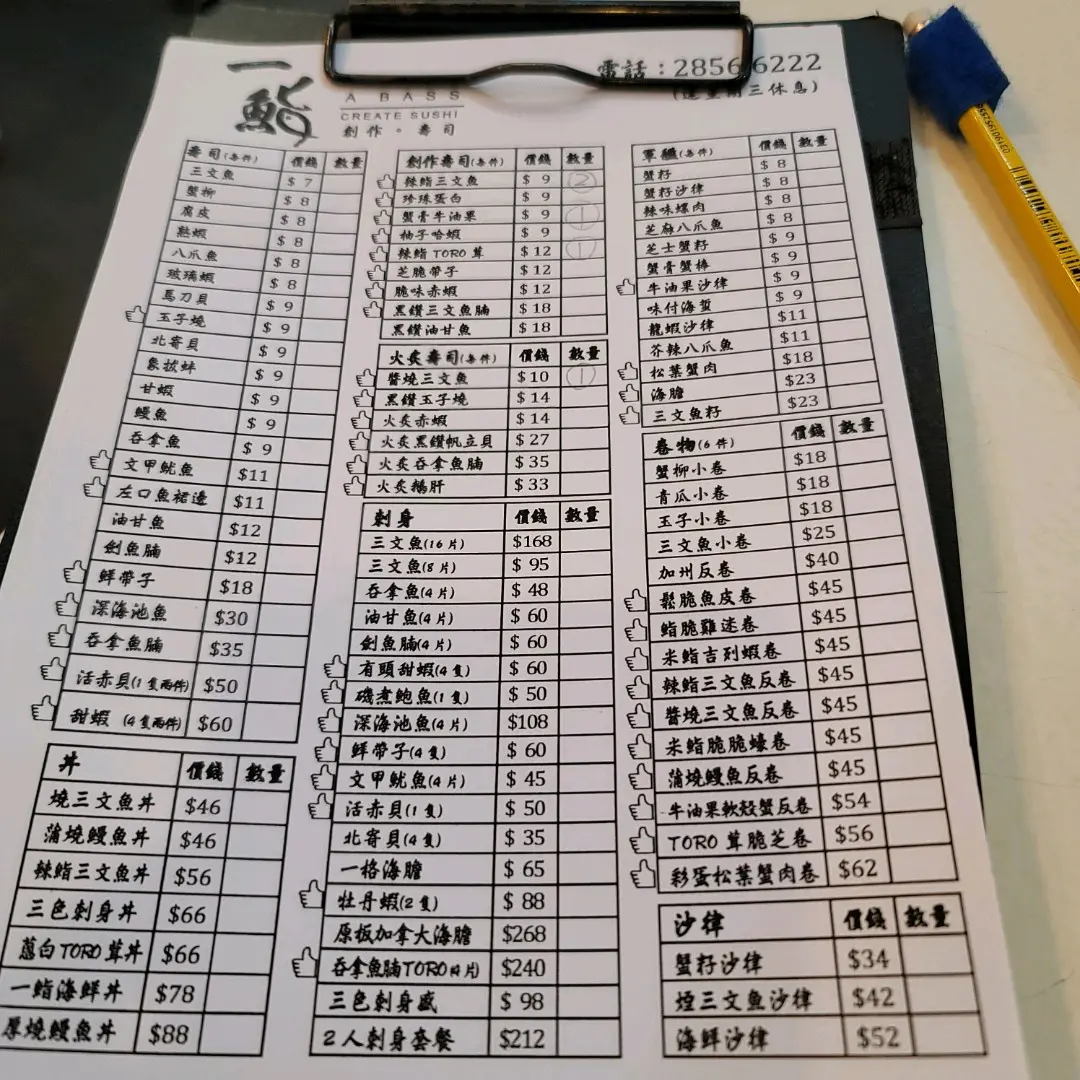 一鮨
A BASS
CREATE SUSHI
創作。壽司
電話：2856 6222
三休息)
壽司(每件) 價錢 數量
三文魚 $7
蟹柳 $8
腐皮 $8
熟蝦 $8
八爪魚 $8
玻璃蝦 $8
馬刀貝 $9
玉子燒 $9
北寄貝 $9
象拔蚌 $9
甘蝦 $9
鰻魚 $9
吞拿魚 $9
文甲魷魚 $11
左口魚裙邊 $11
油甘魚 $12
劍魚腩 $12
鮮帶子 $18
深海池魚 $30
吞拿魚腩 $35
活赤貝(1隻兩件) $50
甜蝦 (4隻兩件) $60
丼 價錢 數量
燒三文魚丼 $46
蒲燒鰻魚丼 $46
辣鮨三文魚丼 $56
三色刺身丼 $66
蔥白TORO茸丼 $66
一鮨海鮮丼 $78
厚燒鰻魚丼 $88
創作壽司(每件) 價錢 數量
辣鮨三文魚 $9 ②
珍珠蛋白 $9
蟹膏牛油果 $9 ①
柚子哈蝦 $9
辣鮨TORO茸 $12 ①
芝脆帶子 $12
脆味赤蝦 $12
黑鑽三文魚腩 $18
黑鑽油甘魚 $18
火炙壽司(每件) 價錢 數量
醬燒三文魚 $10 ①
黑鑽玉子燒 $14
火炙赤蝦 $14
火炙黑鑽帆立貝 $27
火炙吞拿魚腩 $35
火炙鵝肝 $33
刺身 價錢 數量
三文魚(16片) $168
三文魚(8片) $95
吞拿魚(4片) $48
油甘魚(4片) $60
劍魚腩(4片) $60
有頭甜蝦(4隻) $60
磯煮鮑魚(1隻) $50
深海池魚(4片) $108
鮮帶子(4隻) $60
文甲魷魚(4片) $45
活赤貝(1隻) $50
北寄貝(4隻) $35
一格海膽 $65
牡丹蝦(2隻) $88
原板加拿大海膽 $268
吞拿魚腩TORO(4片) $240
三色刺身盛 $98
2人刺身套餐 $212
軍艦(每件) 價錢 數量
蟹籽 $8
蟹籽沙律 $8
辣味螺肉 $8
芝麻八爪魚 $8
芝士蟹籽 $9
蟹膏蟹棒 $9
牛油果沙律 $9
味付海蜇 $9
龍蝦沙律 $11
芥辣八爪魚 $11
松葉蟹肉 $18
海膽 $23
三文魚籽 $23
卷物(6件) 價錢 數量
蟹柳小卷 $18
青瓜小卷 $18
玉子小卷 $18
三文魚小卷 $25
加州反卷 $40
鬆脆魚皮卷 $45
鮨脆雞迷卷 $45
米鮨吉列蝦卷 $45
辣鮨三文魚反卷 $45
醬燒三文魚反卷 $45
米鮨脆脆蠔卷 $45
蒲燒鰻魚反卷 $45
牛油果軟殼蟹反卷 $54
TORO茸脆芝卷 $56
彩蛋松葉蟹肉卷 $62
沙律 價錢 數量
蟹籽沙律 $34
煙三文魚沙律 $42
海鮮沙律 $52